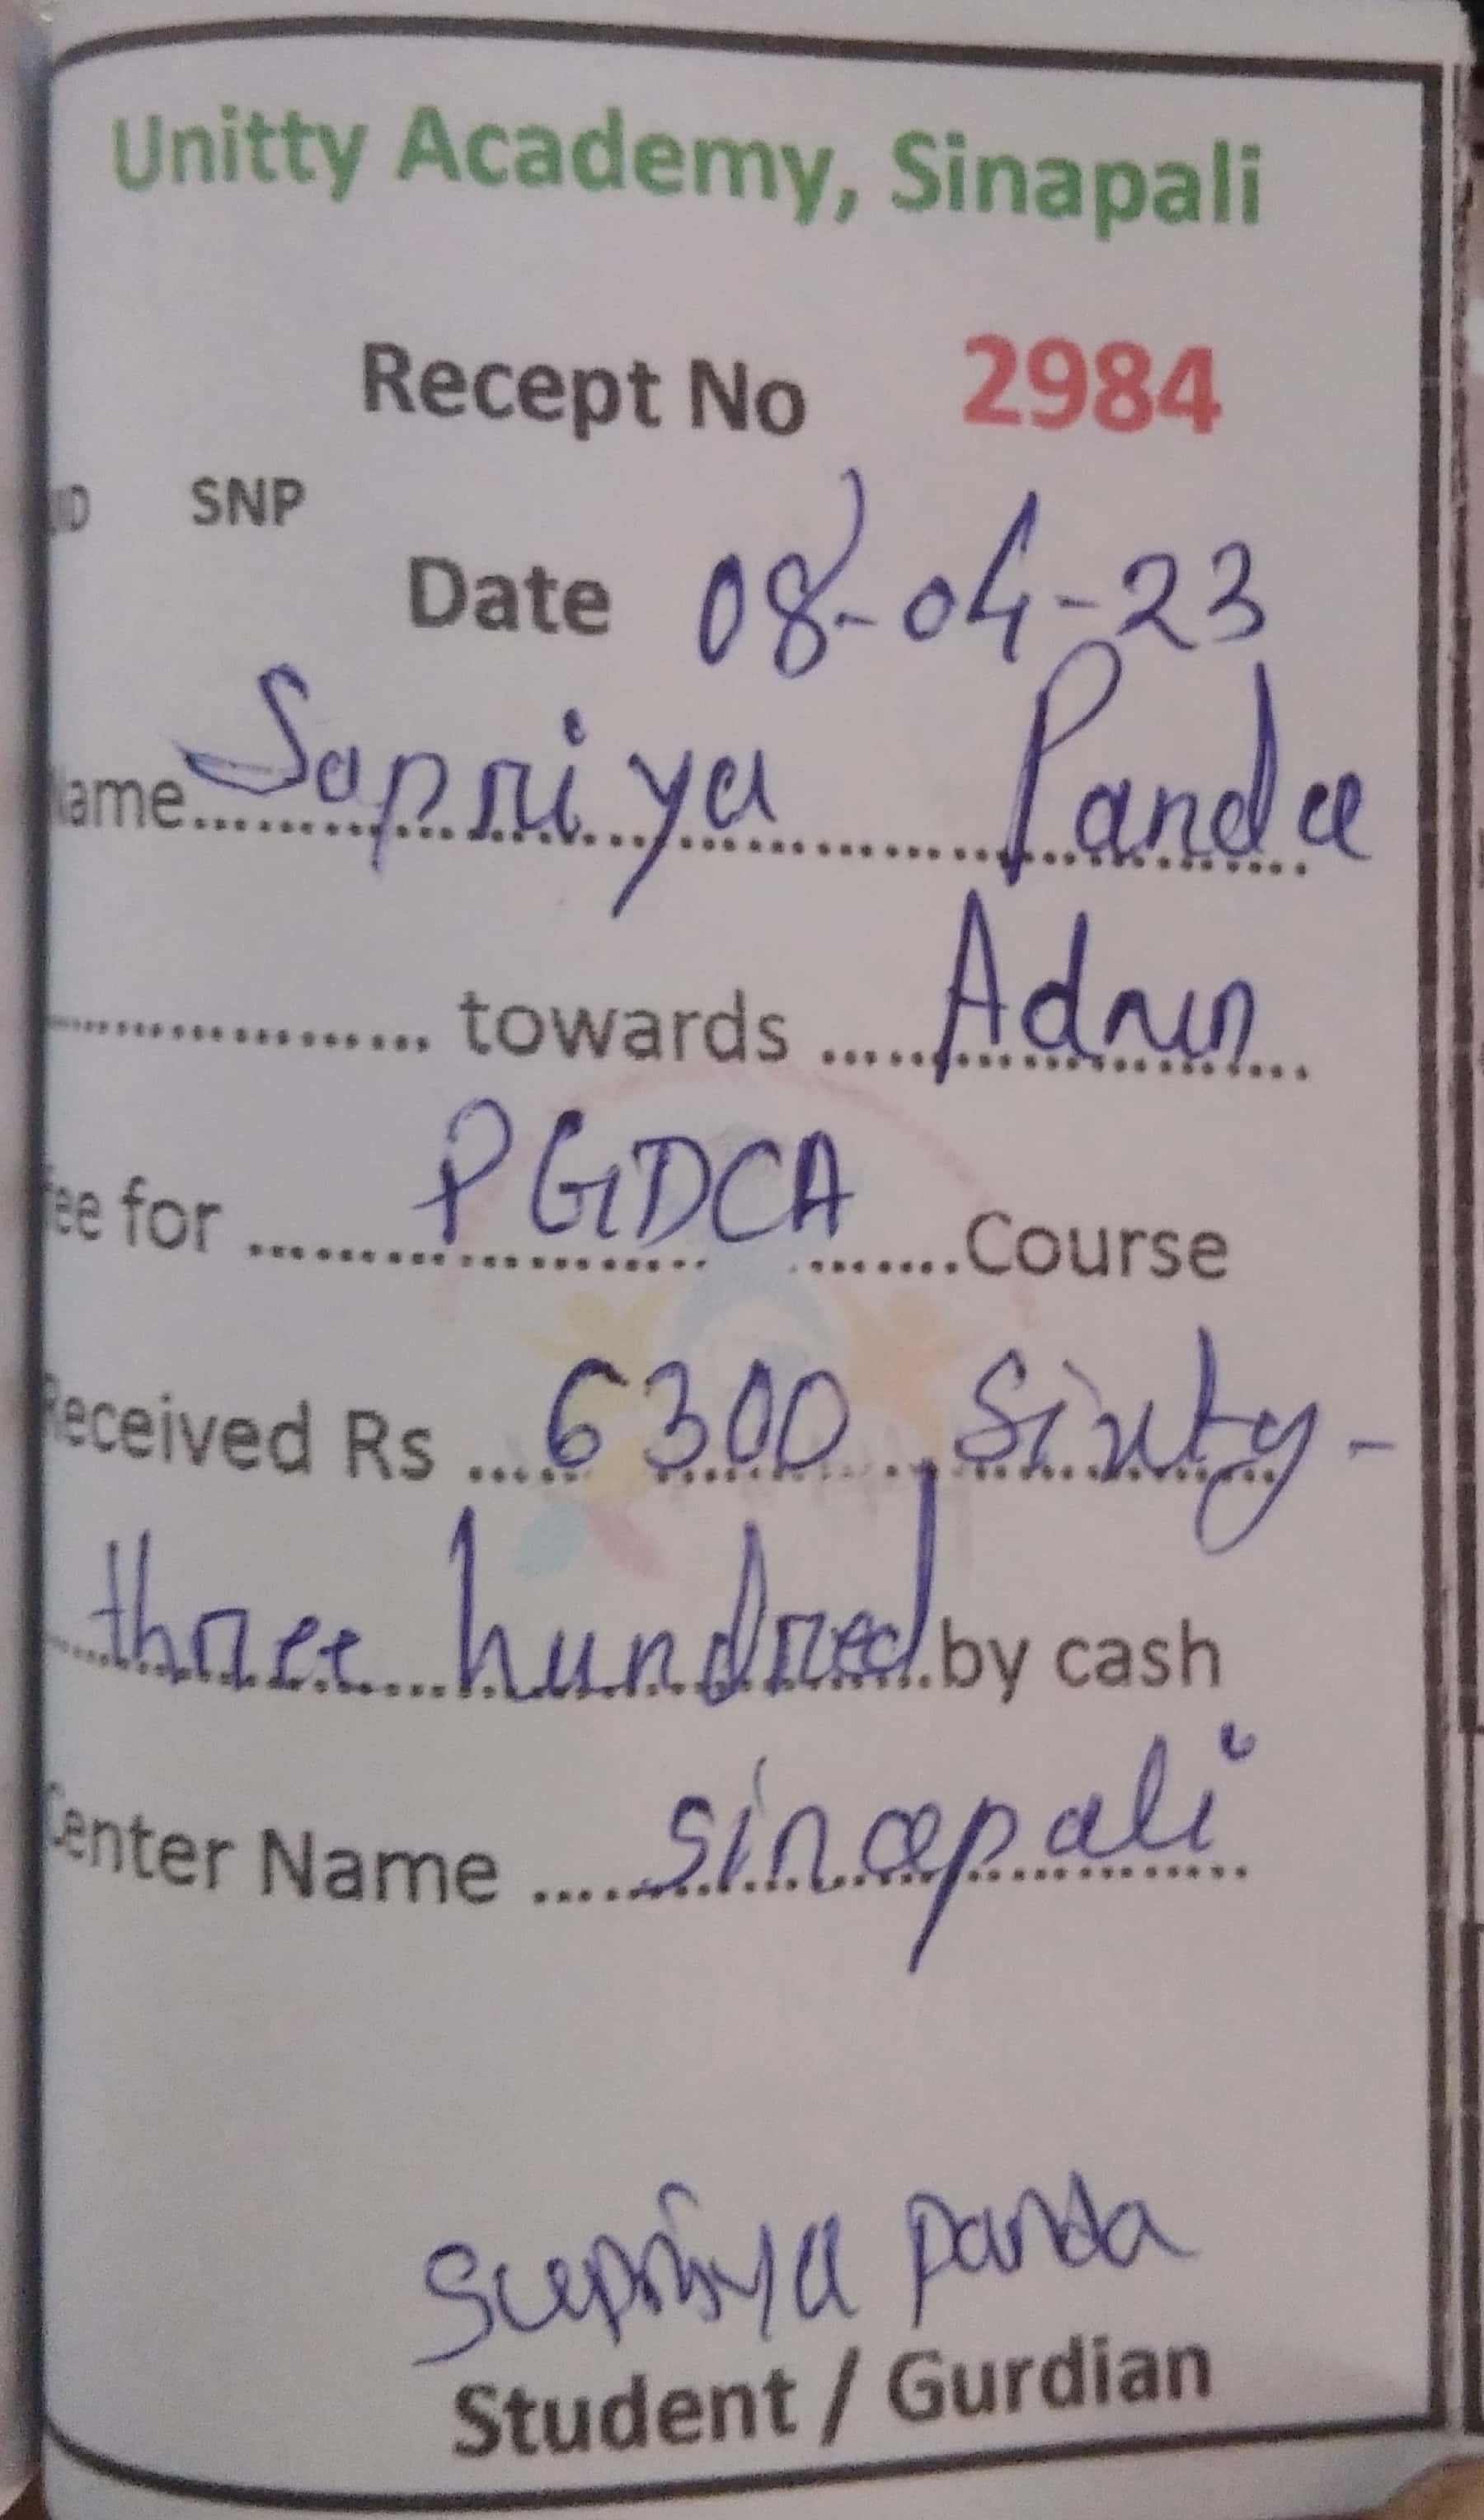 Unitty Academy, Sinapali
Recept No 2984
SNP
Date 08-04-23
Name Supriya Panda
towards Admn
Fee for PGDCA Course
Received Rs 6300 Sixty-
three hundred by cash
Center Name sinapali
Supriya panda
Student / Gurdian